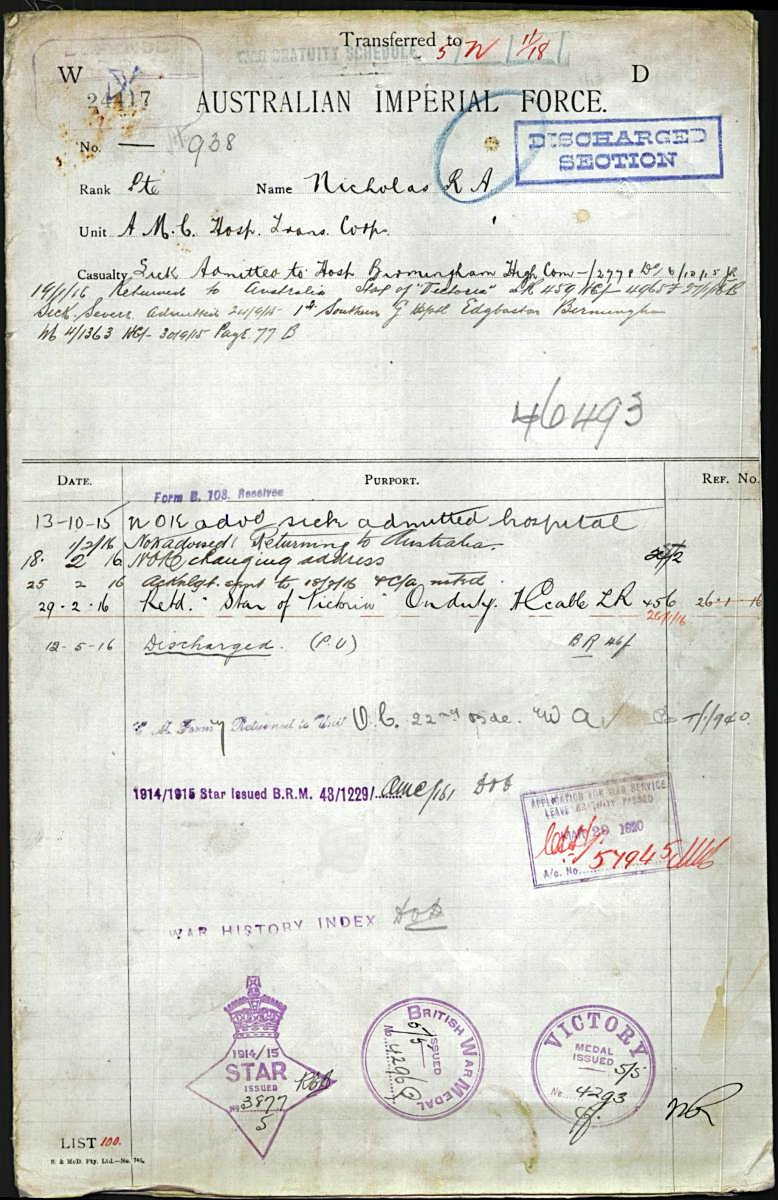 Transferred to
WAR GRATUITY SCHEDULE 5 N 11/18
W D
24417
AUSTRALIAN IMPERIAL FORCE.
No. — 938
DISCHARGED
SECTION
Rank Pte Name Nicholas R A
Unit A M.C. Hosp. Trans. Corp.
Casualty Sick Admitted to Hosp Birmingham High Com
19/1/16 Returned to Australia Star of "Victoria" LR 459
Sick. Severe. admitted 24/9/15 1st Southern G Hptl Edgbaston Birmingham
4/1363 30/9/15 Page 77 B
46493
DATE. PURPORT. REF. No.
Form B. 103. Received
13-10-15 NOK advd sick admitted hospital
1/2/16 Nok advised Returning to Australia.
18. 2 16 NOK changing address
25 2 16 Acknlgt. sent to 18/2/16 & C/A noted.
29-2-16 Retd. "Star of Victoria" On duty. HC cable LR 456 26-1-16
26/1/16
12-5-16 Discharged. (P.U) BR 46
Returned to Unit O.C. 22nd Bde. W A
1914/1915 Star Issued B.R.M. 48/1229/ AMC/161
APPLICATION FOR WAR SERVICE
LEAVE GRATUITY PASSED
MAR 29 1920
A/c. No. 57945
WAR HISTORY INDEX
1914/15
STAR
ISSUED
No 3877
5
BRITISH WAR MEDAL
ISSUED
5/5
No. 4296
VICTORY
MEDAL
ISSUED
5/5
No. 4293
LIST 100.